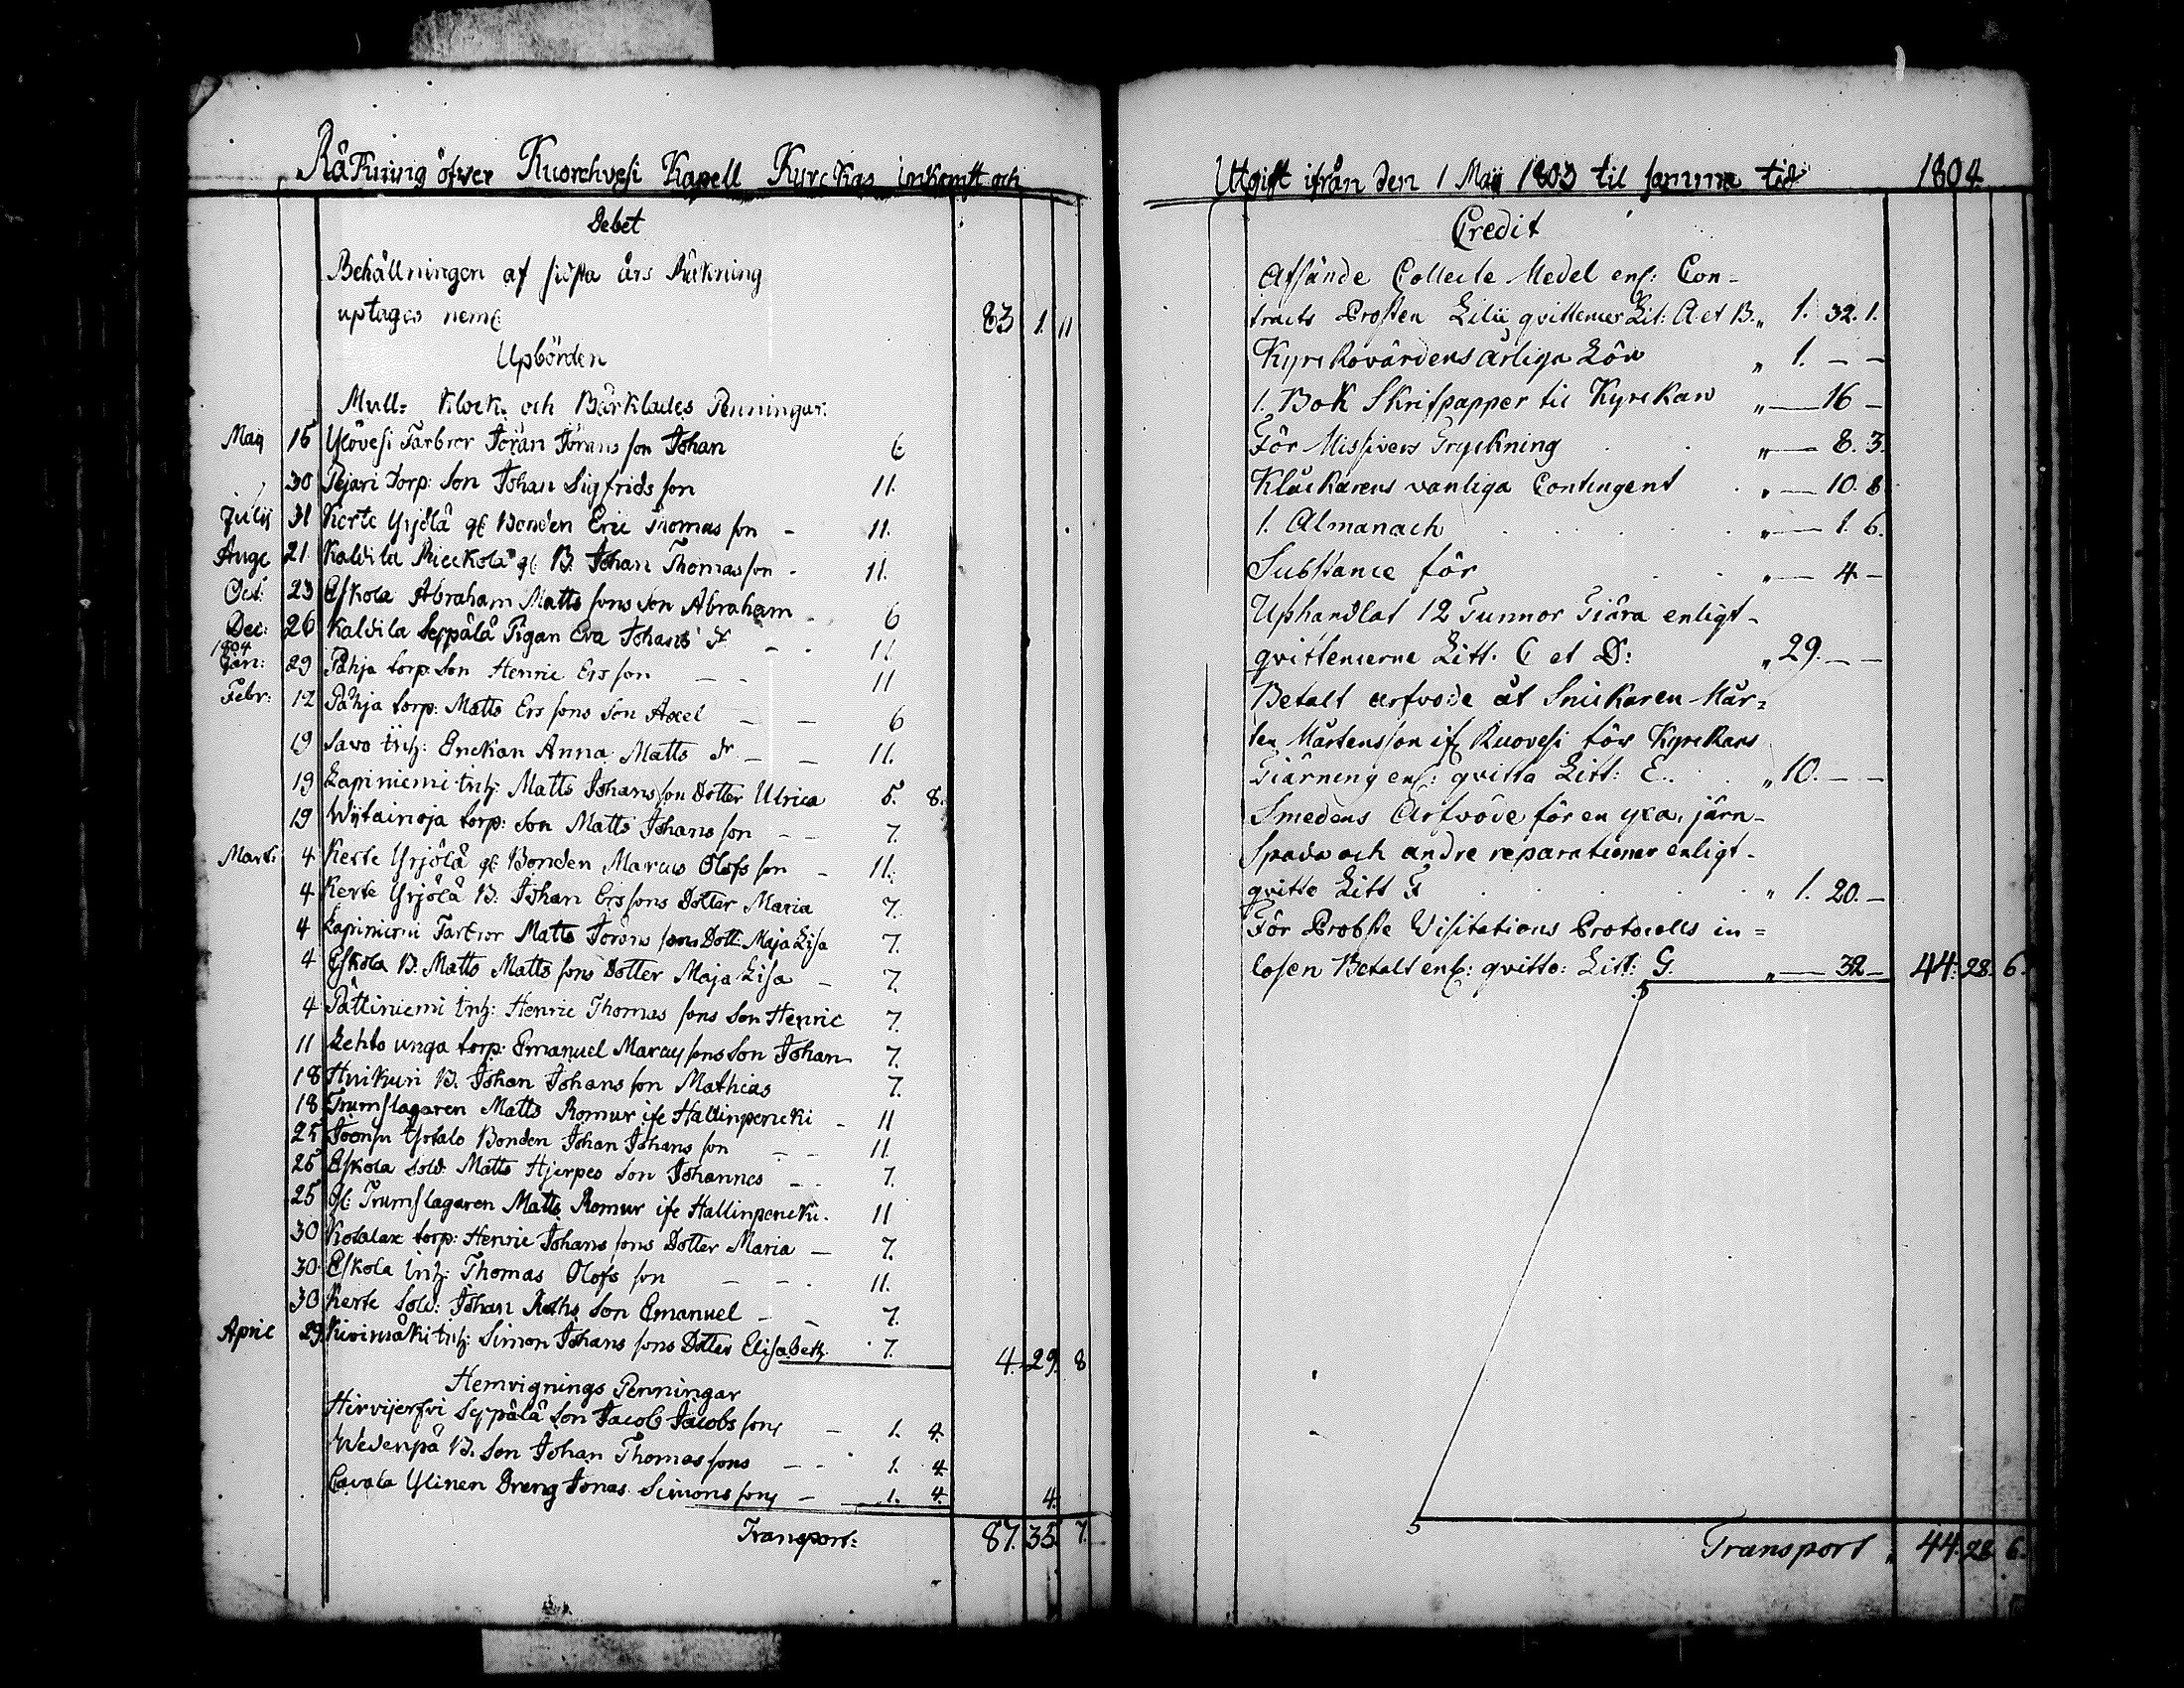 Räkning öfver Kuorehvesi Kapell Kyrckas inkomst och
Debet
Behållningen af sidsta års Räkning
uptages neml: 83 1. 11
Upbörden
Mull= Klock= och Bårklädes Penningar.
Maij 15 Ylövesi Farbror Jöran Jörans son Johan 6
30 Pejari Torp: Son Johan Sigfrids son 11.
Julij 31 Kerte Yrjölä gl: Bonden Eric Thomas son - 11.
Aug: 21 Kaldila Mieckola gl: B. Johan Thomas son - 11.
Oct: 23 Eskola Abraham Matts sons Son Abraham - 6
Dec: 26 Kaldila Seppälä Pigan Eva Johans Dr - - 11
1804
Jan: 29 Påhja torp: Son Henric Ers son — - 11
Febr: 12 Påhja torp: Matts Ers sons Son Axel — — 6
19 Savo inh: Enckan Anna Matts Dr — — 11.
19 Lapiniemi inh: Matts Johans son Dotter Ulrica 5. 8.
19 torp: Son Matts Johans son — — 7.
Mart: 4 Kerte Yrjölä gl: Bonden Marcus Olofs son - 11.
4 Kerte Yrjölä B. Johan Ers sons Dotter Maria 7.
4 Lapiniemi Farbror Matts Jörans sons Dott: Maja Lisa 7.
4 Eskola B. Matts Matts sons Dotter Maja Lisa — 7.
4 Pättiniemi inh: Henric Thomas sons Son Henric 7.
11 Lehto unga torp: Emanuel Marcus sons Son Johan 7.
18 Huikuri B. Johan Johans son Mathias 7.
18 Trumslagaren Matts Romur ifr Hallinpencki - 11
25 Bonden Johan Johans son — — 11.
25 Eskola Sold: Matts Hjerpes Son Johannes — - 7.
25 gl: Trumslagaren Matts Romur ifr Hallinpencki. 11
30 Kotalax torp: Henric Johans sons Dotter Maria — 7.
30 Eskola inh: Thomas Olofs son — - . 11.
30 Kerte Sold: Johan Son Emanuel - - 7.
April 29 Kivimäki inh: Simon Johans sons Dotter Elisabeth. 7. 4. 29. 8
Hemvignings Penningar
Hirvijerfvi Seppälä Son Jacob Jacobs sons — 1. 4.
Wedenpä B. Son Johan Thomas sons — - 1. 4.
Lavala Ylinen Dreng Jonas Simons sons — 1. 4. 4.
Transport: 87. 35. 7.
Utgift ifrån den 1 Maij 1803 til samma tid 1804
Credit
Afsände Collecte Medel enl: Con-
tracts Prosten Lilii qvittencer Lit: A et B. „ 1. 32. 1.
Kyrckovärdens årliga Lön „ 1. — —
1. Bok Skrifpapper til Kyrckan „ — 16 —
För Missivers Tryckning „ — 8. 3.
Klåckarens vanliga Contingent „ — 10. 8
1. Almanach „ — 1. 6.
Substance för „ — 4 —
Uphandlat 12 Tunnor Tiära enligt
qvittencerne Litt. C et D: „ 29. — —
Betalt arfvode åt Snickaren Mår=
ten Mårtensson ifr: Ruovesi för Kyrckans
Tiärning enl: qvitto Litt: E. „ 10. — —
Smedens Arfvode för en yxa, järn-
Spada och andre reparationer enligt
qvitto Litt F „ 1. 20. —
För Probste Visitations Protocolls in=
lösen Betalt enl: qvitto: Litt: G. „ — 32 — 44. 28. 6.
Transport „ 44. 28. 6.